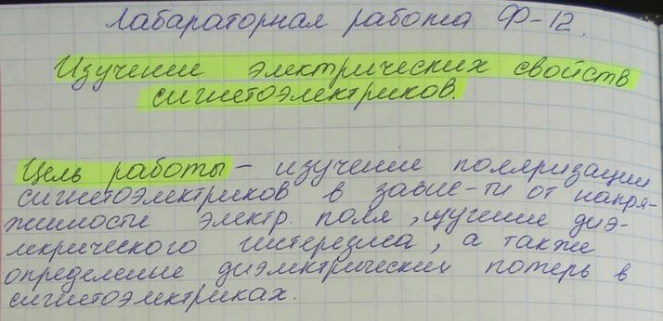 Лабараторная работа Ф-12.
Изучение электрических свойств
сигнетоэлектриков.
Цель работы – изучение поляризации
сигнетоэлектриков в завис-ти от напря-
жимости электр. поля, изучение диэ-
лекрического гистерезиса, а также
определение диэлектрических потерь в
сигнетоэлектриках.